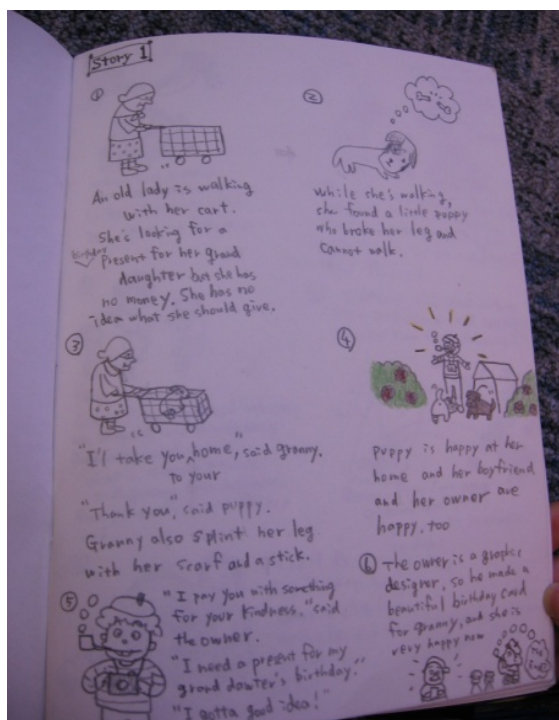 Story 1
①
An old lady is walking
with her cart.
She's looking for a
birthday
Present for her grand
daughter but she has
no money. She has no
idea what she should give.
②
While she's walking,
she found a little puppy
who broke her leg and
cannot walk.
③
"I'll take you home," said granny.
to your
"Thank you", said puppy.
Granny also splint her leg
with her scarf and a stick.
④
Puppy is happy at her
home and her boyfriend
and her owner are
happy, too
⑤
"I pay you with something
for your kindness." said
the owner.
"I need a present for my
grand dawter's birthday."
"I gotta good idea!"
⑥ The owner is a graphic
designer, so he made a
beautiful birthday card
for granny, and she is
very happy now
The
End